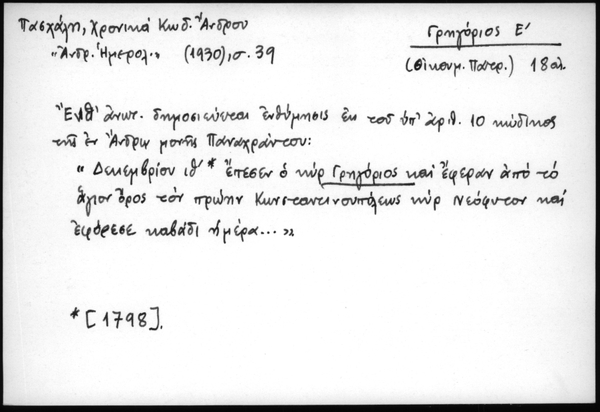 Πασχάλη, Χρονικά Κωδ. Ἄνδρου
"Ἀνδρ. Ἡμερολ." (1930), σ. 39
Γρηγόριος Ε'
(Οἰκουμ. Πατρ.) 18 αἰ.
Ἔνθ' ἀνωτ. δημοσιεύεται ἐνθύμησις ἐκ τοῦ ὑπ' ἀριθ. 10 κώδικος
τῆς ἐν Ἄνδρῳ μονῆς Παναχράντου:
" Δεκεμβρίου ιθ' * ἔπεσεν ὁ κύρ Γρηγόριος καί ἔφεραν ἀπό τό
ἅγιον ὄρος τόν πρώην Κωνσταντινουπόλεως κύρ Νεόφυτον καί
ἐφόρεσε καβάδι ἡμέρα... »
* [1798].